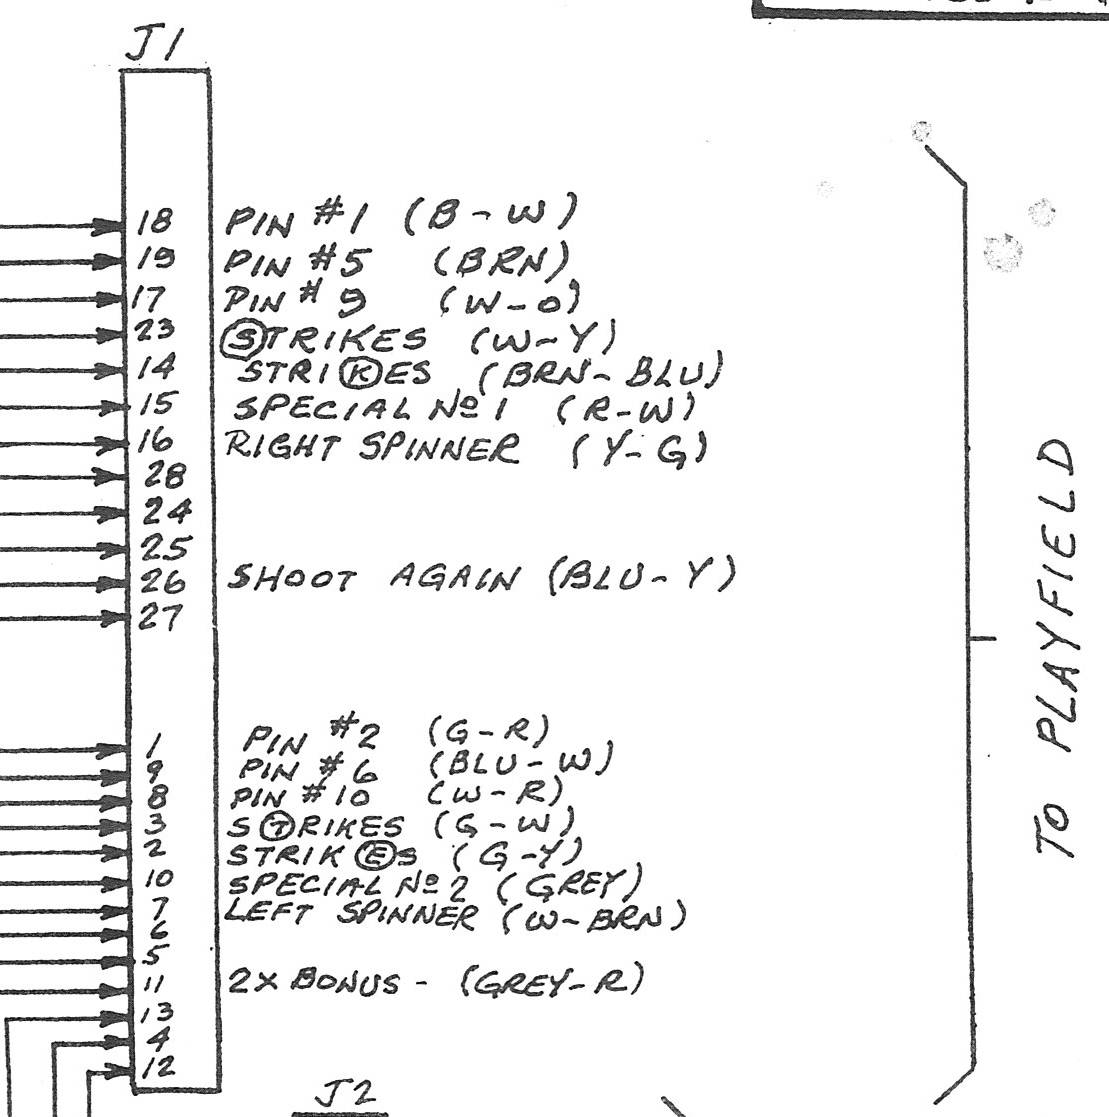 J1
18 PIN #1 (B-W)
19 PIN #5 (BRN)
17 PIN #9 (W-O)
23 STRIKES (W-Y)
14 STRIKES (BRN-BLU)
15 SPECIAL № 1 (R-W)
16 RIGHT SPINNER (Y-G)
28
24
25
26 SHOOT AGAIN (BLU-Y)
27
1 PIN #2 (G-R)
9 PIN #6 (BLU-W)
8 PIN #10 (W-R)
3 STRIKES (G-W)
2 STRIKES (G-Y)
10 SPECIAL № 2 (GREY)
7 LEFT SPINNER (W-BRN)
6
5
11 2X BONUS - (GREY-R)
13
4
12
TO PLAYFIELD
J2